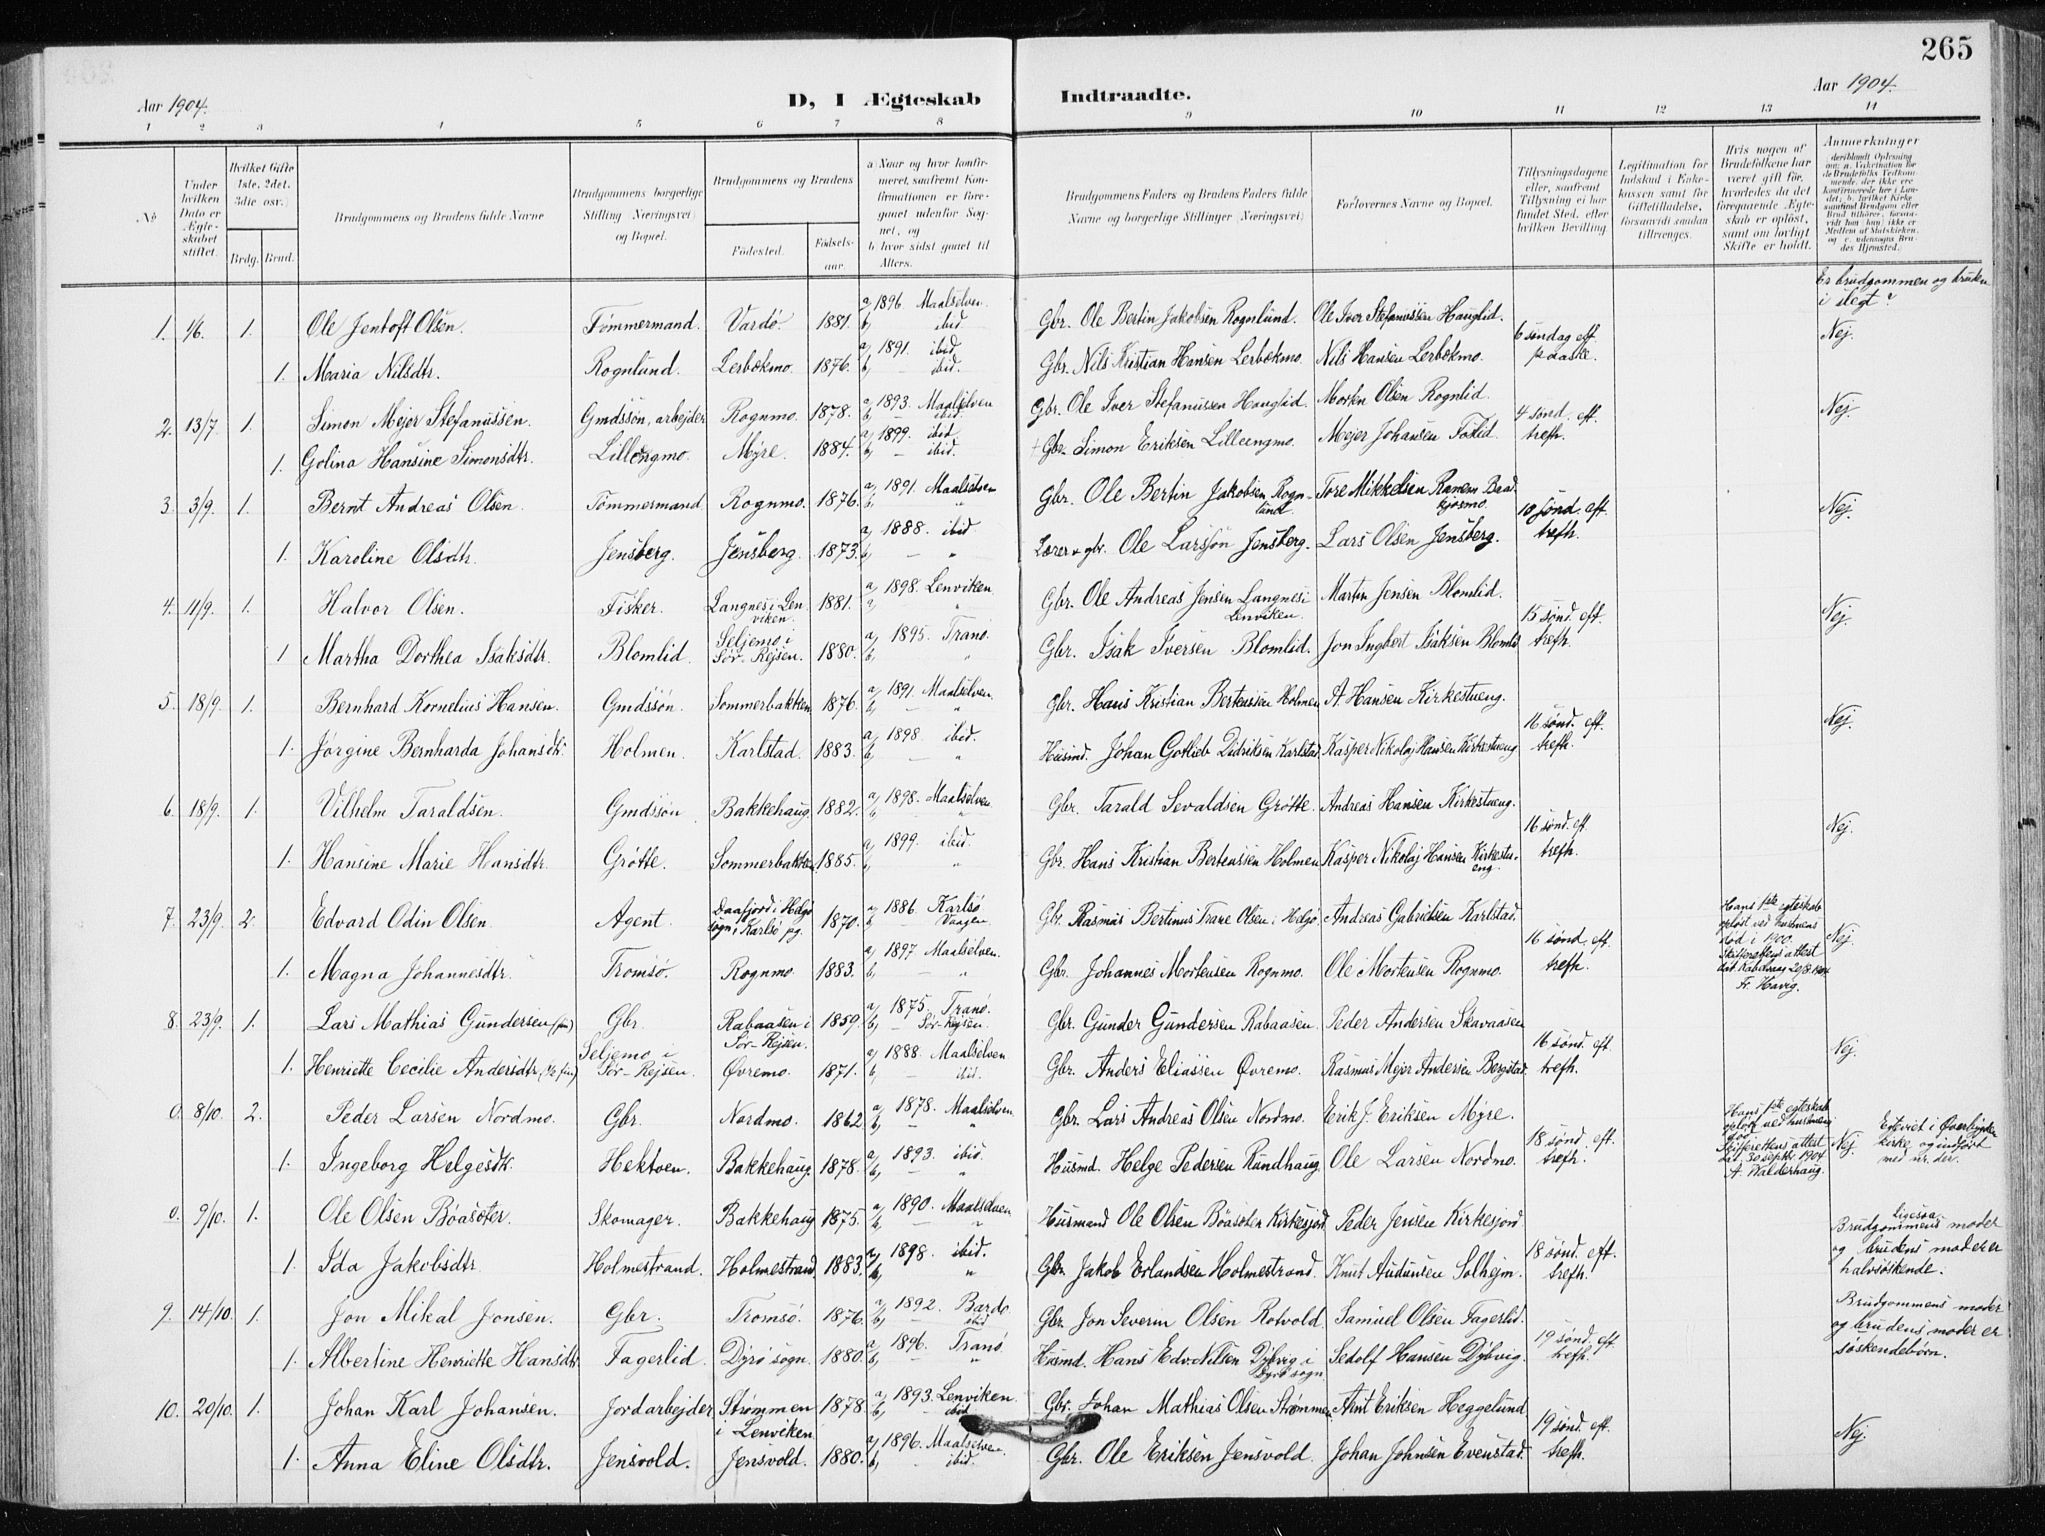 265
Aar 1904.
D, I Ægteskab Indtraadte.
Aar 1904.
1 2 3 4 5 6 7 8 9 10 11 12 13 14
No
Under hvilken Dato er Ægteskabet stiftet.
Hvilket Gifte 1ste, 2det, 3die osv.)
Brdg. Brud.
Brudgommens og Brudens fulde Navne
Brudgommens borgerlige Stilling (Næringsvei) og Bopæl.
Brudgommens og Brudens
Fødested. Fødselsaar
a) Naar og hvor konfirmeret, saafremt Konfirmationen er foregaaet udenfor Sognet, og
b) hvor sidst gaaet til Alters.
Brudgommens Faders og Brudens Faders fulde Navne og borgerlige Stillinger (Næringsvei)
Forlovernes Navne og Bopæl.
Tillysningsdagene eller, saafremt Tillysning ei har fundet Sted, efter hvilken Bevilling.
Legitimation for Indskud i Enkekassen samt for Giftetilladelse, forsaavidt saadan tiltrænges.
Hvis nogen af Brudefolkene har været gift før, hvorledes da det foregaaende Ægteskab er opløst, samt om lovligt Skifte er holdt.
Anmerkninger
Er brudgommen og bruden i slegt?
1. 1/6. 1. Ole Jentoft Olsen. Tømmermand. Vardø. 1881. a, 1896. Maalselven. b, ibid. Gbr. Ole Bertin Jakobsen Rognlund. Ole Iver Stefanussen Hauglid. 6 søndag eft. paaske. Nej.
1. Maria Nilsdtr. Rognlund. Lerbækmo. 1876. a, 1891. ibid. b, — ibid. Gbr. Nils Kristian Hansen Lerbækmo. Nils Hansen Lerbækmo.
2. 13/7. 1. Simon Mejer Stefanussen. Gmdssøn, arbejder Rognmo. 1878. a, 1893. Maalselven b, — ibid. Gbr. Ole Iver Stefanussen Hauglid. Morten Olsen Rognlid. 4 sønd. eft. trefh. Nej.
1. Golina Hansine Simonsdtr. Lillengmo. Myre. 1884. a, 1899. ibid. b, — ibid. + Gbr. Simon Eriksen Lilleengmo. Mejer Johansen Foslid.
3. 3/9. 1. Bernt Andreas Olsen. Tømmermand. Rognmo. 1876. a, 1891. Maalselven b, " Gbr. Ole Bertin Jakobsen Rognlund. Tore Mikkelsen Ranem 18 sønd. eft. trefh. Nej.
1. Karoline Olsdtr. Jensberg. Jensberg. 1873. a, 1888. ibid b, — " Lærer & gbr. Ole Larssøn Jensberg. Lars Olsen Jensberg.
4. 11/9. 1. Halvor Olsen. Fisker. Langnes i Lenviken. 1881. a, 1898. Lenviken. " Gbr. Ole Andreas Jensen Langnes i Lenviken. Martin Jensen Blomlid. 15 sønd. eft. trefh. Nej.
1 Martha Dorthea Isaksdtr. Blomlid. Seljemo i Sør-Rejsen. 1880. a, 1895. Tranø. b, " Gbr. Isak Iversen Blomlid. Jon Ingbert Isaksen Blomlid
5. 18/9. 1. Bernhard Kornelius Hansen. Gmdssøn. Sommerbakken 1876. a, 1891. Maalselven. b, — " Gbr. Hans Kristian Berteussen Holmen A. Hansen Kirkestueng. 16 sønd. eft. trefh. Nej.
1. Jørgine Bernharda Johansdtr. Holmen. Karlstad. 1883. a, 1898. ibid. b, — " Husmd. Johan Gotlieb Didriksen Karlstad. Kasper Nikolaj Hansen Kirkestueng
6. 18/9. 1. Vilhelm Taraldsen. Gmdssøn Bakkehaug. 1882. a, 1898. Maalselven b, — " Gbr. Tarald Sevaldsen Grøtte. Andreas Hansen Kirkestueng. 16 sønd. eft. trefh. Nej.
1. Hansine Marie Hansdtr. Grøtte. Sommerbakken. 1885. a, 1899. ibid. b, " Gbr. Hans Kristian Berteussen Holmen Kasper Nikolaj Hansen Kirkestueng.
7. 23/9. 2. Edvard Odin Olsen. Agent. Daafjord i Helgø sogn i Karlsø pg. 1870. a, 1886 Karlsø b — Vaagen Gbr. Rasmus Bertinus Trane Olsen i Helgø. Andreas Gabrielsen Karlstad. 16 sønd. eft. trefh. Hans 1ste egteskab opløst ved hustruens død i 1900. Skifterettens attest 20/8. 1904 Fr. Havig. Nej.
1. Magna Johannesdtr. Tromsø. Rognmo. 1883. a, 1897. Maalselven. b, — " Gbr. Johannes Mortensen Rognmo. Ole Mortensen Rognmo.
8. 23/9. 1. Lars Mathias Gundersen (fin) Gbr. Rabaasen i Sør-Rejsen. 1859. a, 1875. Tranø. b, — Sør-Rejsen. Gbr. Gunder Gundersen Rabaasen. Peder Andersen Skavaasen 16 sønd. eft. trefh. Nej.
1. Henriette Cecilie Andersdtr. (1/2 fin) Seljemo i Sør-Rejsen. Øvremo. 1871. a, 1888. Maalselven b, — ibid. Gbr. Anders Eliassen Øvremo. Rasmus Mejer Andersen Bergstad.
0. 8/10. 2. Peder Larsen Nordmo. Gbr. Nordmo. 1862 a, 1878. Maalselven. b, — " Gbr. Lars Andreas Olsen Nordmo. Erik J. Eriksen Myre. 18 sønd. eft. trefh. Hans 1ste egteskab opløst ved hustruens død Skifterettens attest dat. 30 septbr. 1904 A. Walderhaug. Nej. i Øverbygden kirke og indført med nr. der.
1. Ingeborg Helgesdtr. Hektoen. Bakkehaug. 1878. a, 1893. ibid. b, — " Husmd. Helge Pedersen Rundhaug. Ole Larsen Nordmo.
0. 9/10. 1. Ole Olsen Bøasøter. Skomager. Bakkehaug 1875. a, 1890. Maalselven b, — " Husmand Ole Olsen Bøasøter Kirkesjord. Peder Jensen Kirkesjord 18 sønd. eft. trefh. Ligesaa. Brudgommens moder og brudens moder er halvsøskende.
1. Ida Jakobsdtr. Holmestrand. Holmestrand. 1883. a, 1898. ibid. b, " Gbr. Jakob Erlandsen Holmestrand. Knut Audunsen Solhejm.
9. 14/10. 1. Jon Mikal Jonsen. Gbr. Tromsø. 1876. a, 1892. Bardo. b, — ibid Gbr. Jon Severin Olsen Rotvold. Samuel Olsen Fagerlid. 19 sønd. eft. trefh. Brudgommens moder og brudens moder er søskendebørn.
1. Albertine Henriette Hansdtr. Fagerlid. Dyrø sogn. 1880. a, 1896. Tranø. b, — " Husmd. Hans Edv. Nilsen Dybvig i Dyrø sogn Sedolf Hansen Dybvig.
10. 20/10. 1. Johan Karl Johansen. Jordarbejder Strømmen i Lenviken. 1878. a, 1893. Lenviken b, — ibid. Gbr. Johan Mathias Olsen Strømmen. Arnt Eriksen Heggelund 19 sønd. eft. trefh. Nej.
1. Anna Eline Olsdtr. Jensvold. Jensvold. 1880. a, 1896. Maalselven. b, — ibid. Gbr. Ole Eriksen Jensvold. Johan Johnsen Evenstad.